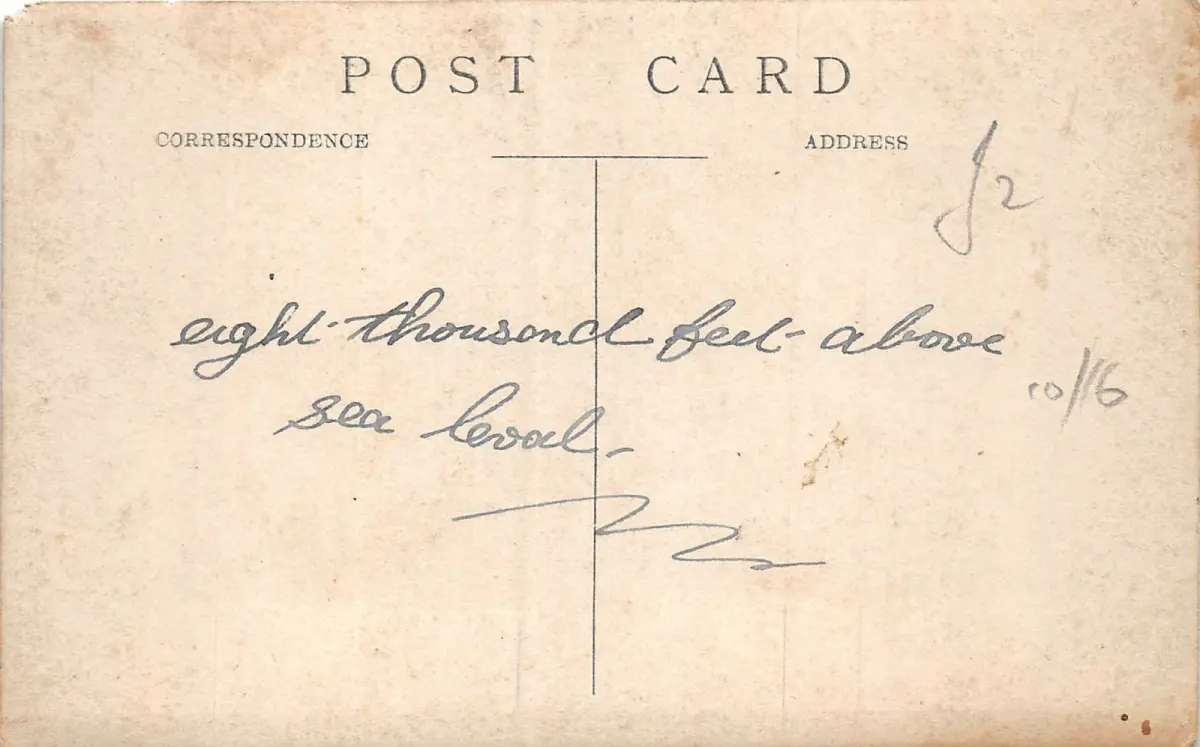 POST CARD
CORRESPONDENCE
ADDRESS
eight thousand feet above
sea leval
10/16